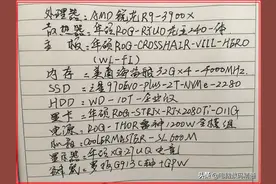 处理器：AMD 锐龙R9-3900X
散热器：华硕ROG-RYUO龙王240一体
主板：华硕ROG-CROSSHAIR-VIII-HERO
(WI-FI)
内存：美商海盗船32G×4-4000MHz
SSD：三星970EVO-Plus-2T-NVMe-2280
HDD：WD-10T-企业级
显卡：华硕ROG-STRIX-RTX2080Ti-O11G
电源：ROG-THOR雷神1200W全模组
机箱：COOLERMASTER-SL600M
显示器：华硕XG27UQ电竞
键鼠：罗技G913C种+GPW